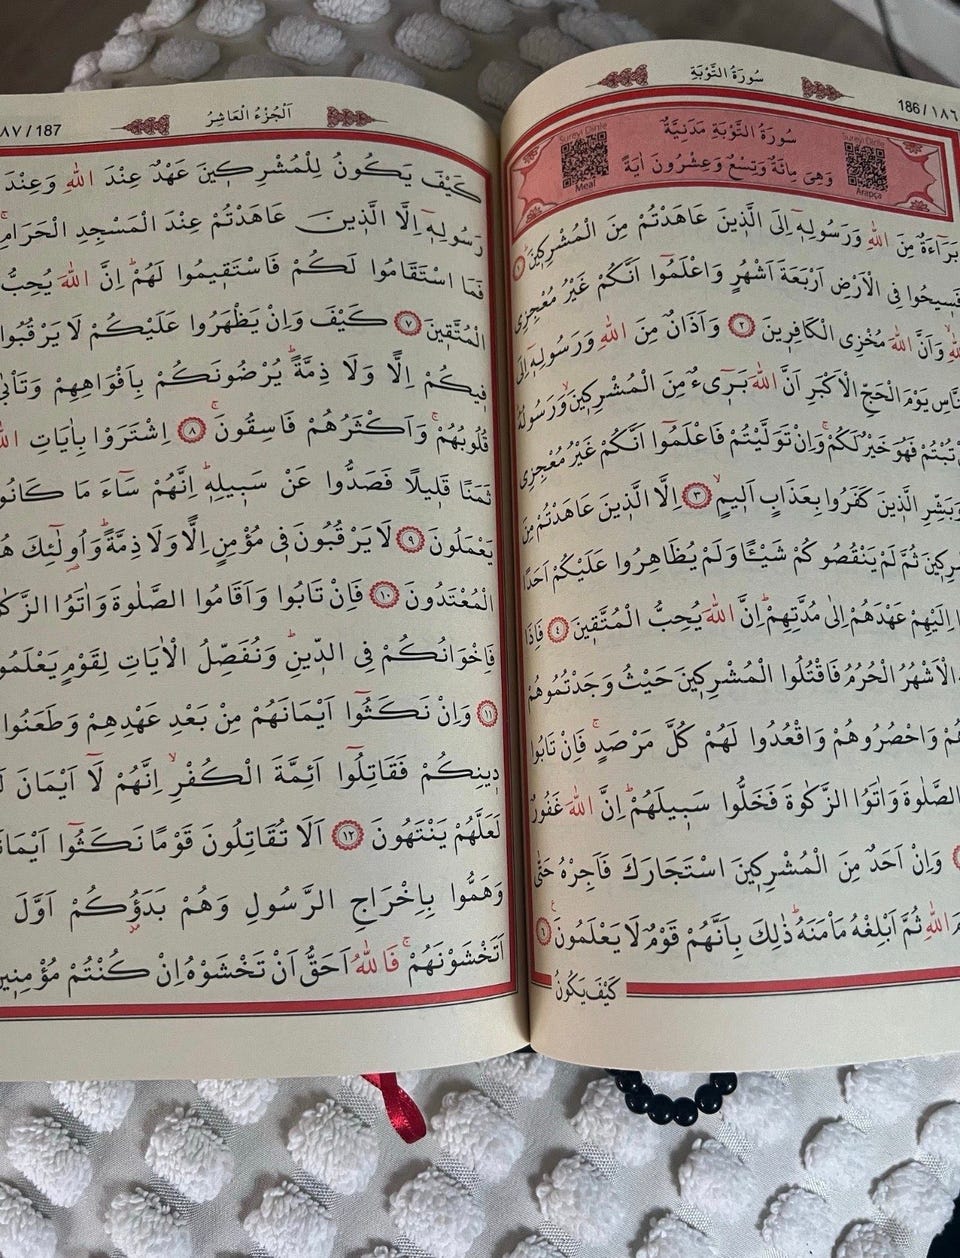 186/١٨٦
سُورَةُ التَّوْبَةِ
Sureyi Dinle
Meal
سُورَةُ التَّوْبَةِ مَدَنِيَّةٌ
وَهِيَ مِائَةٌ وَتِسْعٌ وَعِشْرُونَ اٰيَةً
Sureyi Dinle
Arapça
بَرَٓاءَةٌ مِنَ اللّٰهِ وَرَسُولِه۪ٓ اِلَى الَّذ۪ينَ عَاهَدْتُمْ مِنَ الْمُشْرِك۪ينَۜ ١
فَس۪يحُوا فِي الْاَرْضِ اَرْبَعَةَ اَشْهُرٍ وَاعْلَمُٓوا اَنَّكُمْ غَيْرُ مُعْجِزِي
اللّٰهِۙ وَاَنَّ اللّٰهَ مُخْزِي الْكَافِر۪ينَ ٢ وَاَذَانٌ مِنَ اللّٰهِ وَرَسُولِه۪ٓ اِلَى
النَّاسِ يَوْمَ الْحَجِّ الْاَكْبَرِ اَنَّ اللّٰهَ بَر۪ٓيءٌ مِنَ الْمُشْرِك۪ينَۙ وَرَسُولُهُۜ
تُبْتُمْ فَهُوَ خَيْرٌ لَكُمْۚ وَاِنْ تَوَلَّيْتُمْ فَاعْلَمُٓوا اَنَّكُمْ غَيْرُ مُعْجِزِي
وَبَشِّرِ الَّذ۪ينَ كَفَرُوا بِعَذَابٍ اَل۪يمٍۙ ٣ اِلَّا الَّذ۪ينَ عَاهَدْتُمْ مِنَ
ثُمَّ لَمْ يَنْقُصُوكُمْ شَيْـًٔا وَلَمْ يُظَاهِرُوا عَلَيْكُمْ اَحَدًا
اِلَيْهِمْ عَهْدَهُمْ اِلٰى مُدَّتِهِمْۜ اِنَّ اللّٰهَ يُحِبُّ الْمُتَّق۪ينَ ٤ فَاِذَا
الْاَشْهُرُ الْحُرُمُ فَاقْتُلُوا الْمُشْرِك۪ينَ حَيْثُ وَجَدْتُمُوهُمْ
وَاحْصُرُوهُمْ وَاقْعُدُوا لَهُمْ كُلَّ مَرْصَدٍۚ فَاِنْ تَابُوا
الصَّلٰوةَ وَاٰتَوُا الزَّكٰوةَ فَخَلُّوا سَب۪يلَهُمْۜ اِنَّ اللّٰهَ غَفُورٌ
وَاِنْ اَحَدٌ مِنَ الْمُشْرِك۪ينَ اسْتَجَارَكَ فَاَجِرْهُ حَتّٰى
اللّٰهِ ثُمَّ اَبْلِغْهُ مَأْمَنَهُۜ ذٰلِكَ بِاَنَّهُمْ قَوْمٌ لَا يَعْلَمُونَ۟ ٦
كَيْفَ يَكُونُ
اَلْجُزْءُ الْعَاشِرُ
٨٧/187
كَيْفَ يَكُونُ لِلْمُشْرِك۪ينَ عَهْدٌ عِنْدَ اللّٰهِ وَعِنْدَ
رَسُولِه۪ٓ اِلَّا الَّذ۪ينَ عَاهَدْتُمْ عِنْدَ الْمَسْجِدِ الْحَرَامِۚ
فَمَا اسْتَقَامُوا لَكُمْ فَاسْتَق۪يمُوا لَهُمْۜ اِنَّ اللّٰهَ يُحِبُّ
الْمُتَّق۪ينَ ٧ كَيْفَ وَاِنْ يَظْهَرُوا عَلَيْكُمْ لَا يَرْقُبُوا
ف۪يكُمْ اِلًّا وَلَا ذِمَّةًۜ يُرْضُونَكُمْ بِاَفْوَاهِهِمْ وَتَأْبٰى
قُلُوبُهُمْۚ وَاَكْثَرُهُمْ فَاسِقُونَۚ ٨ اِشْتَرَوْا بِاٰيَاتِ اللّٰهِ
ثَمَنًا قَل۪يلًا فَصَدُّوا عَنْ سَب۪يلِه۪ۜ اِنَّهُمْ سَٓاءَ مَا كَانُوا
يَعْمَلُونَ ٩ لَا يَرْقُبُونَ ف۪ي مُؤْمِنٍ اِلًّا وَلَا ذِمَّةًۜ وَاُو۬لٰٓئِكَ
الْمُعْتَدُونَ ١٠ فَاِنْ تَابُوا وَاَقَامُوا الصَّلٰوةَ وَاٰتَوُا الزَّكٰوةَ
فَاِخْوَانُكُمْ فِي الدّ۪ينِۜ وَنُفَصِّلُ الْاٰيَاتِ لِقَوْمٍ يَعْلَمُونَ
١١ وَاِنْ نَكَثُٓوا اَيْمَانَهُمْ مِنْ بَعْدِ عَهْدِهِمْ وَطَعَنُوا
د۪ينِكُمْ فَقَاتِلُٓوا اَئِمَّةَ الْكُفْرِۙ اِنَّهُمْ لَٓا اَيْمَانَ
لَعَلَّهُمْ يَنْتَهُونَ ١٢ اَلَا تُقَاتِلُونَ قَوْمًا نَكَثُٓوا اَيْمَانَهُمْ
وَهَمُّوا بِاِخْرَاجِ الرَّسُولِ وَهُمْ بَدَؤُ۫كُمْ اَوَّلَ
اَتَخْشَوْنَهُمْۚ فَاللّٰهُ اَحَقُّ اَنْ تَخْشَوْهُ اِنْ كُنْتُمْ مُؤْمِن۪ينَ